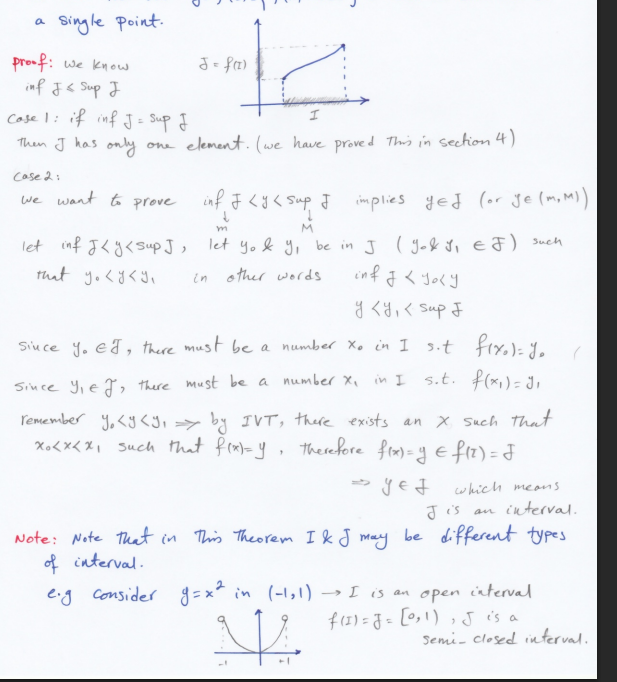 a single point.
proof: we know J = f(I)
inf J ≤ Sup J
I
Case 1: if inf J = Sup J
Then J has only one element. (we have proved This in section 4)
Case 2:
we want to prove inf J < y < Sup J implies y ∈ J (or y ∈ (m, M))
m M
let inf J < y < Sup J, let y₀ & y₁ be in J (y₀ & y₁ ∈ J) such
that y₀ < y < y₁ in other words inf J < y₀ < y
y < y₁ < Sup J
Since y₀ ∈ J, there must be a number x₀ in I s.t f(x₀) = y₀
Since y₁ ∈ J, there must be a number x₁ in I s.t. f(x₁) = y₁
remember y₀ < y < y₁ ⇒ by IVT, there exists an x such that
x₀ < x < x₁ such that f(x) = y, therefore f(x) = y ∈ f(I) = J
⇒ y ∈ J which means
J is an interval.
Note: Note that in This Theorem I & J may be different types
of interval.
e.g consider y = x² in (-1,1) → I is an open interval
f(I) = J = [0,1), J is a
semi-closed interval.
-1 +1